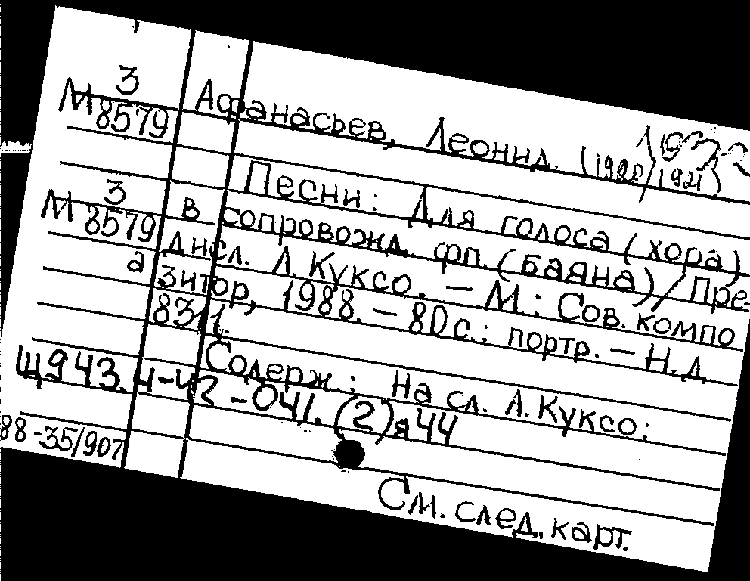 3
М 8579
Афанасьев, Леонид. (1921)
Песни: Для голоса (хора)
3
М 8579
а
в сопровожд. фп. (баяна) / Пре
дисл. А. Куксо. – М.: Сов. компо
зитор, 1988. – 80 с.: портр. – Н.д.
8311.
Содерж: На сл. А. Куксо:
Щ943.4-42-041.(2)я44
88-35/907
См. след. карт.